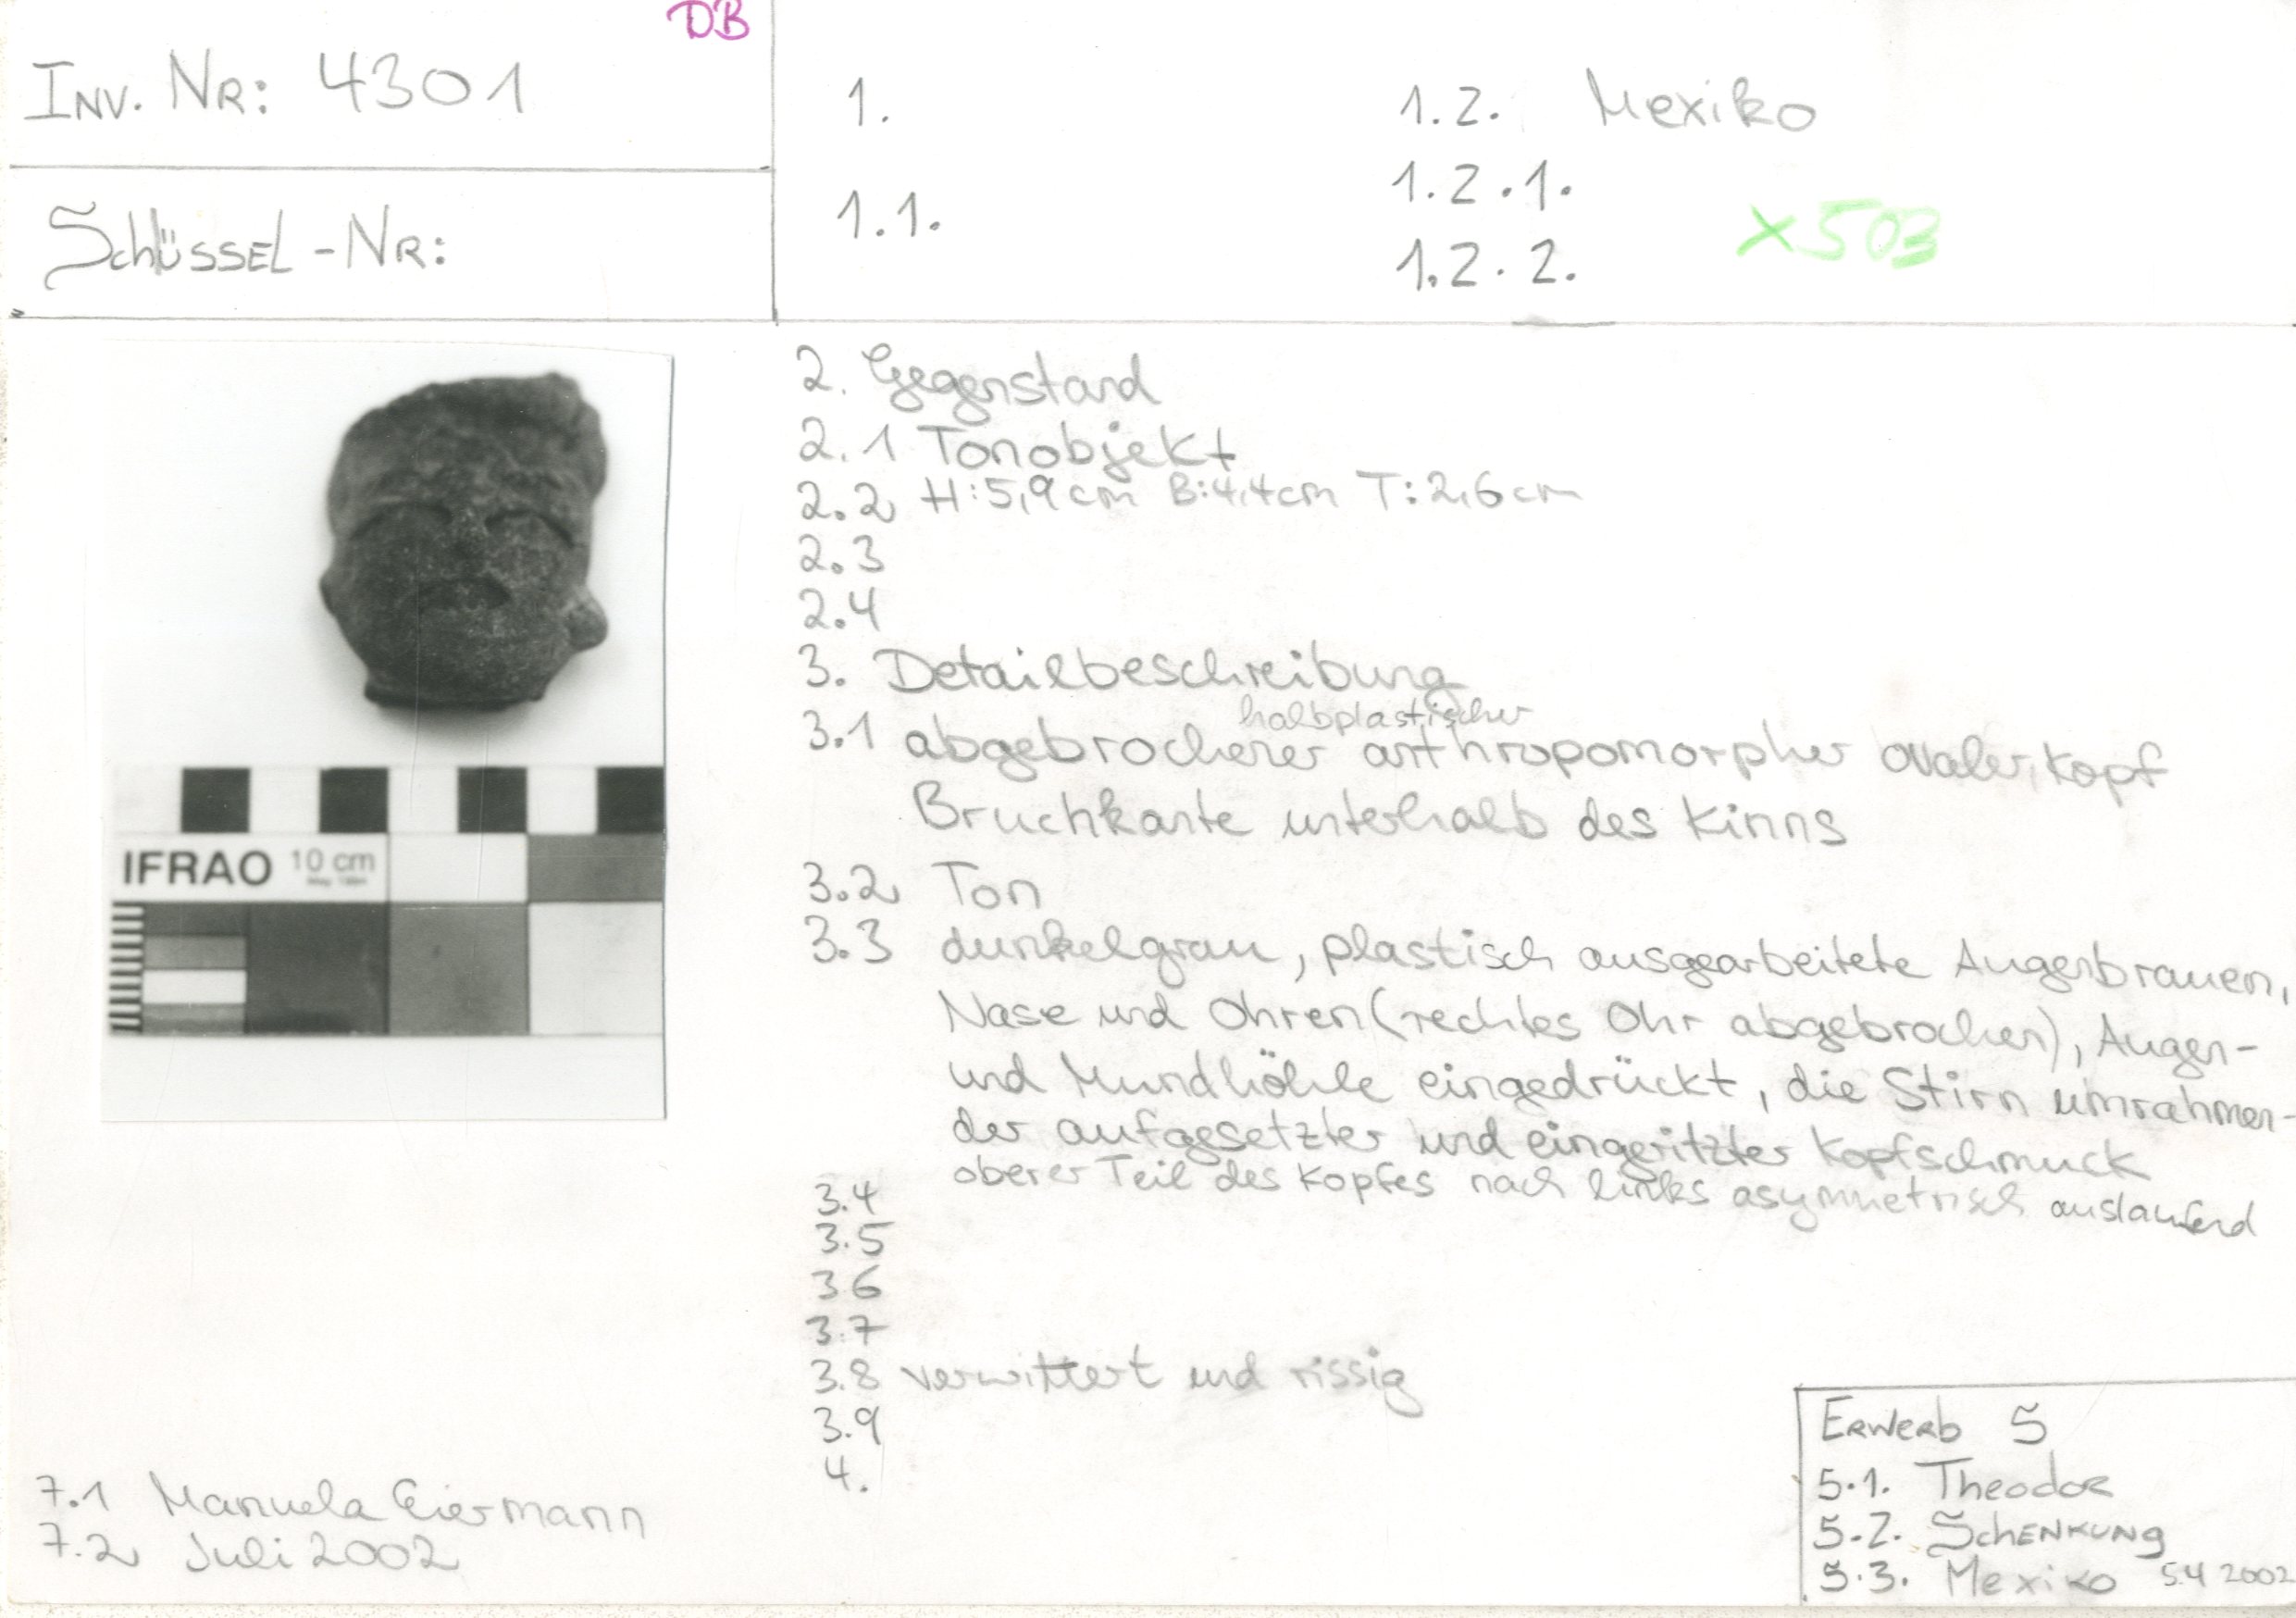 DB
INV. NR: 4301
SchüSSEL - NR:
1.
1.1.
1.2. Mexiko
1.2.1.
1.2.2.
X503
2. Gegenstand
2.1 Tonobjekt
2.2 H: 5,9 cm B: 4,4 cm T: 2,6 cm
2.3
2.4
3. Detailbeschreibung
halbplastischer
3.1 abgebrochener anthropomorpher ovaler, Kopf
Bruchkante unterhalb des Kinns
3.2 Ton
3.3 dunkelgrau, plastisch ausgearbeitete Augenbrauen,
Nase und Ohren (rechtes Ohr abgebrochen), Augen-
und Mundhöhle eingedrückt, die Stirn umrahmen-
der aufgesetzter und eingeritzter Kopfschmuck
oberer Teil des Kopfes nach links asymmetrisch auslaufend
3.4
3.5
3.6
3.7
3.8 verwittert und rissig
3.9
4.
IFRAO 10 cm
7.1 Manuela Eiermann
7.2 Juli 2002
ERWERB 5
5.1. Theodor
5.2. SCHENKUNG
5.3. Mexiko 5.4 2002